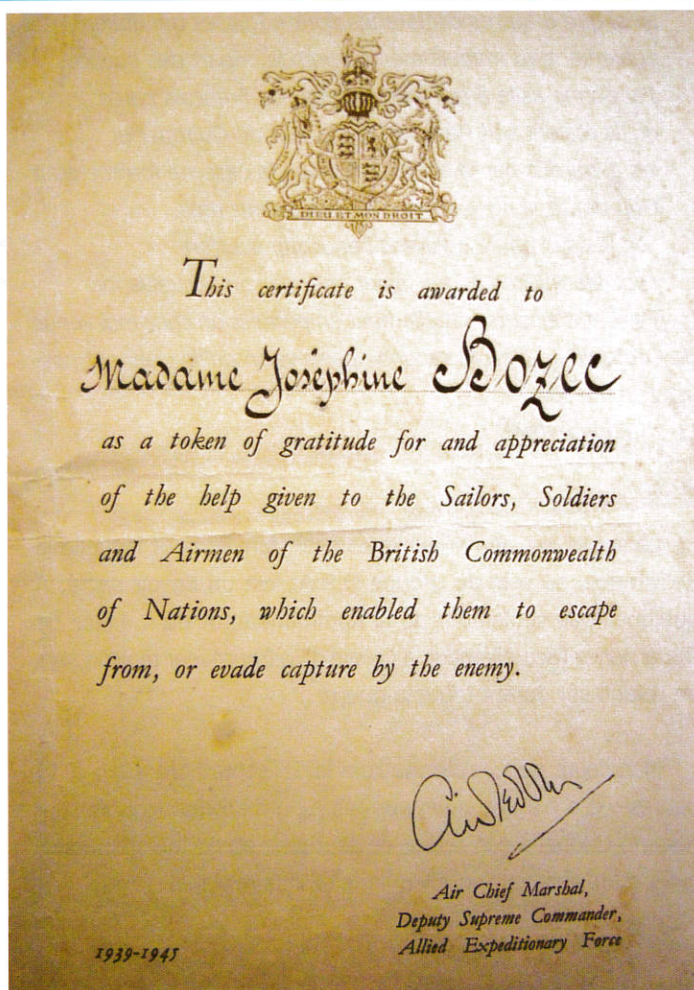 DIEU ET MON DROIT
This certificate is awarded to
Madame Joséphine Bozec
as a token of gratitude for and appreciation
of the help given to the Sailors, Soldiers
and Airmen of the British Commonwealth
of Nations, which enabled them to escape
from, or evade capture by the enemy.
Air Chief Marshal,
Deputy Supreme Commander,
Allied Expeditionary Force
1939-1945